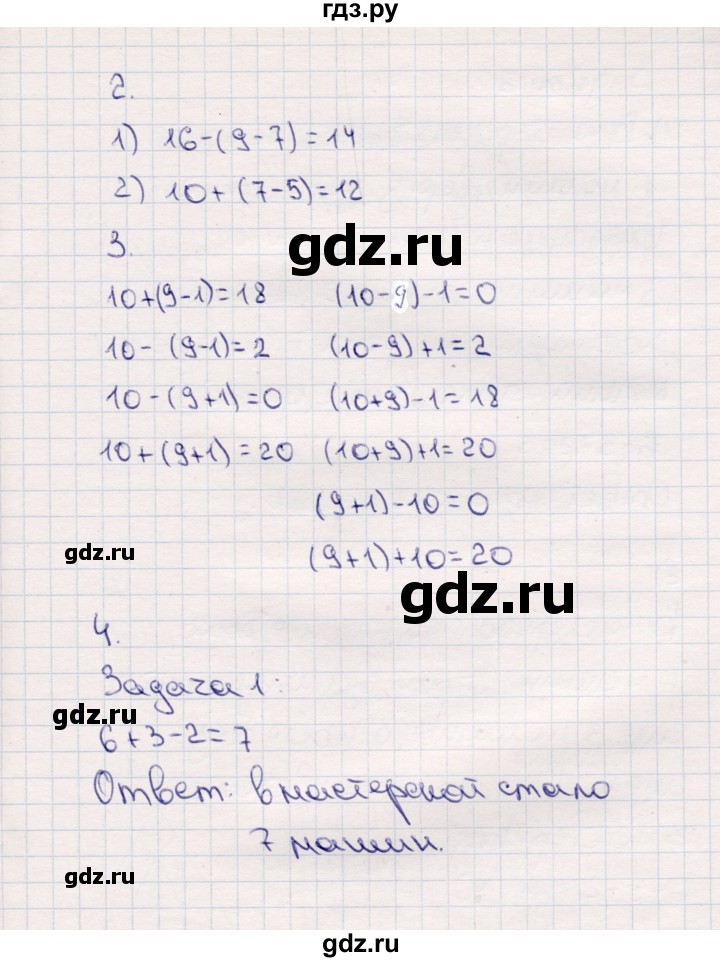 гдз.ру
2.
1) 16-(9-7)=14
2) 10+(7-5)=12
gdz.ru
3.
10+(9-1)=18 (10-9)-1=0
10-(9-1)=2 (10-9)+1=2
10-(9+1)=0 (10+9)-1=18
10+(9+1)=20 (10+9)+1=20
(9+1)-10=0
gdz.ru
(9+1)+10=20
gdz.ru
4.
Задача 1:
gdz.ru
6+3-2=7
Ответ: в мастерской стало
7 машин.
gdz.ru
gdz.ru